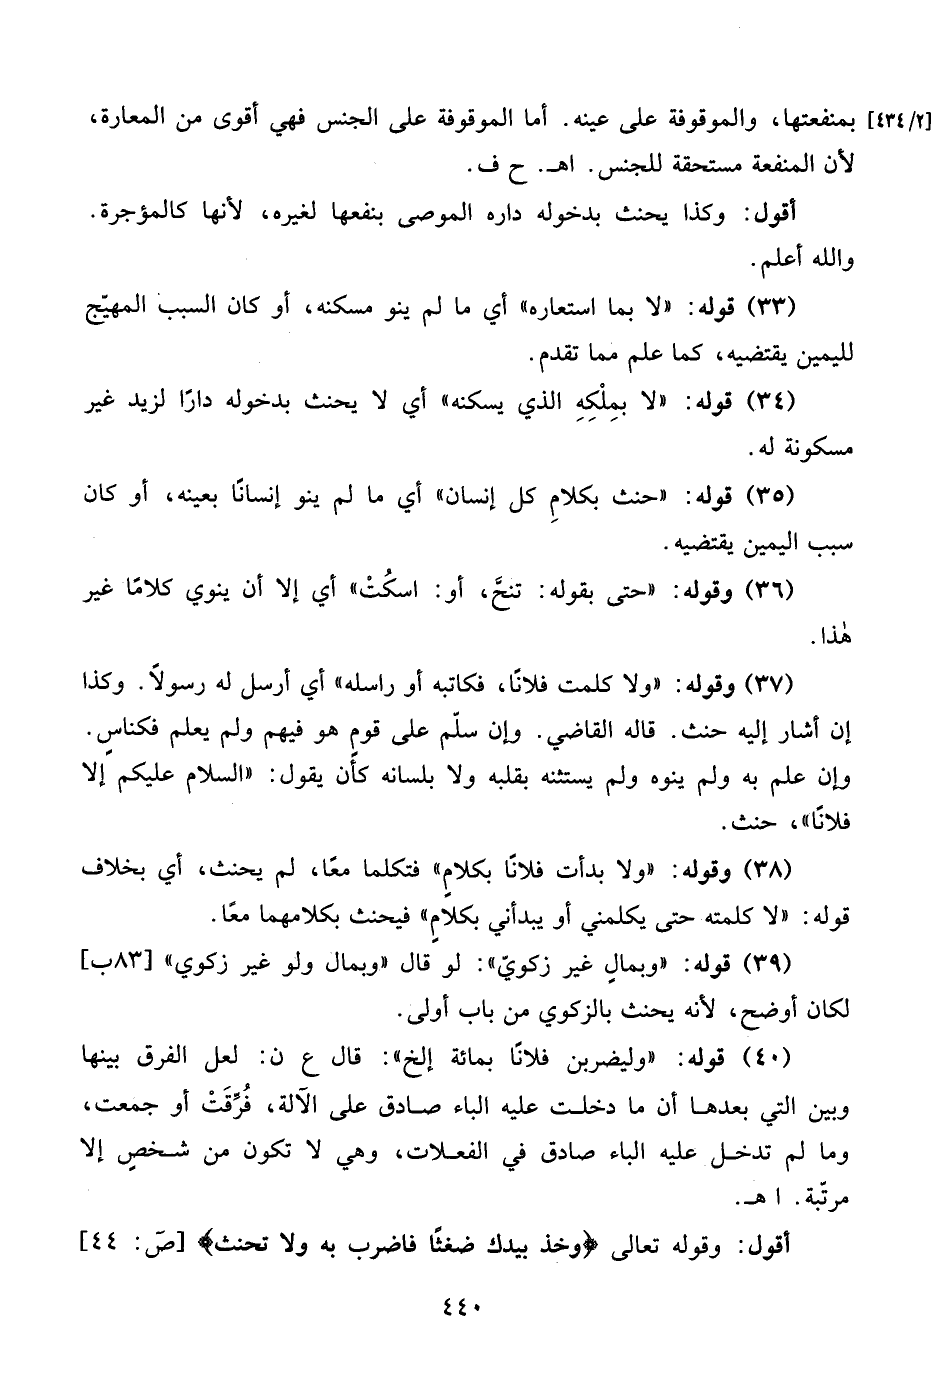 [٤٣٤/٢] بمنفعتها، والموقوفة على عينه. أما الموقوفة على الجنس فهي أقوى من المعارة،
لأن المنفعة مستحقة للجنس. اهـ. ح ف.
أقول: وكذا يحنث بدخوله داره الموصى بنفعها لغيره، لأنها كالمؤجرة.
والله أعلم.
(٣٣) قوله: «لا بما استعاره» أي ما لم ينو مسكنه، أو كان السبب المهيّج
لليمين يقتضيه، كما علم مما تقدم.
(٣٤) قوله: «لا بمِلْكِهِ الذي يسكنه» أي لا يحنث بدخوله دارًا لزيد غير
مسكونة له.
(٣٥) قوله: «حنث بكلامِ كل إنسان» أي ما لم ينو إنسانًا بعينه، أو كان
سبب اليمين يقتضيه.
(٣٦) وقوله: «حتى بقوله: تنحَّ، أو: اسكُتْ» أي إلا أن ينوي كلامًا غير
هٰذا.
(٣٧) وقوله: «ولا كلمت فلانًا، فكاتبه أو راسله» أي أرسل له رسولاً. وكذا
إن أشار إليه حنث. قاله القاضي. وإن سلّم على قومٍ هو فيهم ولم يعلم فكناسٍ.
وإن علم به ولم ينوه ولم يستثنه بقلبه ولا بلسانه كأن يقول: «السلام عليكم إلا
فلانًا»، حنث.
(٣٨) وقوله: «ولا بدأت فلانًا بكلامٍ» فتكلما معًا، لم يحنث، أي بخلاف
قوله: «لا كلمته حتى يكلمني أو يبدأني بكلامٍ» فيحنث بكلامهما معًا.
(٣٩) قوله: «وبمالٍ غير زكويّ»: لو قال «وبمال ولو غير زكوي» [٨٣ب]
لكان أوضح، لأنه يحنث بالزكوي من باب أولى.
(٤٠) قوله: «وليضربن فلانًا بمائة إلخ»: قال ع ن: لعل الفرق بينها
وبين التي بعدها أن ما دخلت عليه الباء صادق على الآلة، فُرِّقَتْ أو جمعت،
وما لم تدخل عليه الباء صادق في الفعلات، وهي لا تكون من شخصٍ إلا
مرتّبة. ا هـ.
أقول: وقوله تعالى ﴿وخذ بيدك ضغثًا فاضرب به ولا تحنث﴾ [صۤ: ٤٤]
٤٤٠